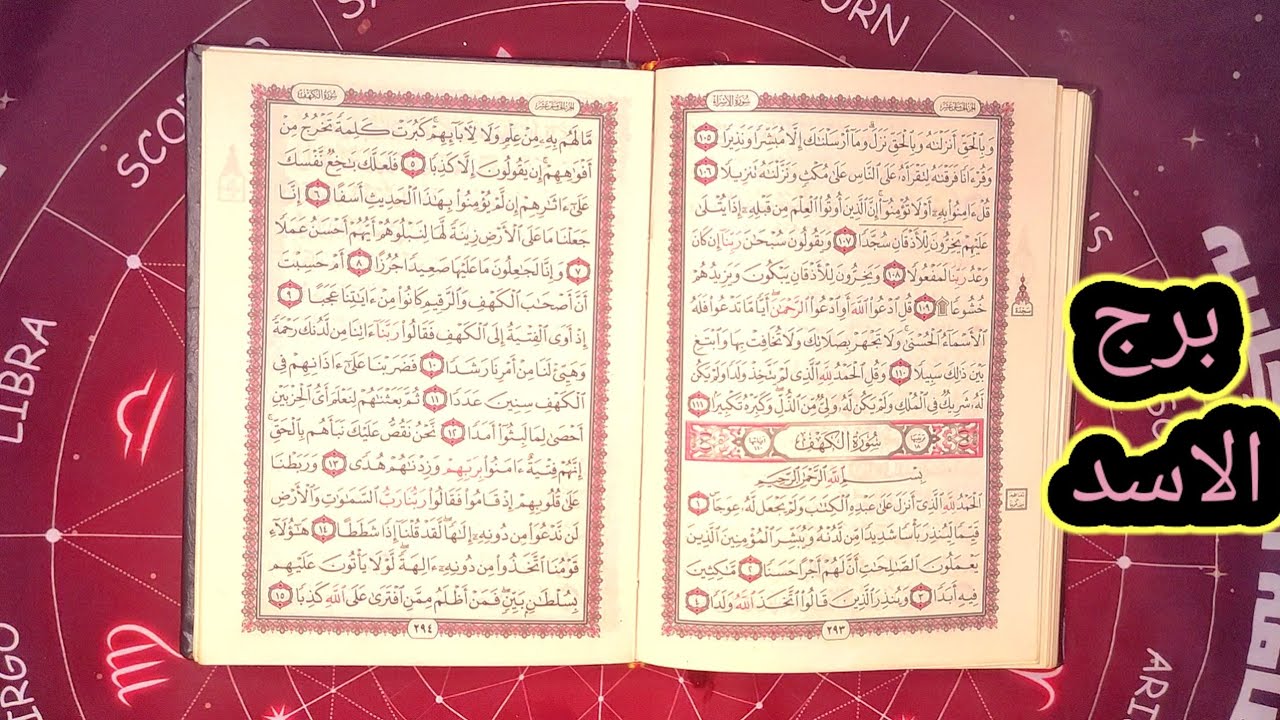 سُورَةُ الإِسْرَاءِ
الجزء الخامس عشر
وَبِالْحَقِّ أَنزَلْنَٰهُ وَبِالْحَقِّ نَزَلَ ۗ وَمَآ أَرْسَلْنَٰكَ إِلَّا مُبَشِّرًا وَنَذِيرًا ١٠٥
وَقُرْءَانًا فَرَقْنَٰهُ لِتَقْرَأَهُۥ عَلَى النَّاسِ عَلَىٰ مُكْثٍ وَنَزَّلْنَٰهُ تَنزِيلًا ١٠٦
قُلْ ءَامِنُوا۟ بِهِۦٓ أَوْ لَا تُؤْمِنُوٓا۟ ۚ إِنَّ الَّذِينَ أُوتُوا۟ الْعِلْمَ مِن قَبْلِهِۦٓ إِذَا يُتْلَىٰ
عَلَيْهِمْ يَخِرُّونَ لِلْأَذْقَانِ سُجَّدًا ١٠٧ وَيَقُولُونَ سُبْحَٰنَ رَبِّنَآ إِن كَانَ
وَعْدُ رَبِّنَا لَمَفْعُولًا ١٠٨ وَيَخِرُّونَ لِلْأَذْقَانِ يَبْكُونَ وَيَزِيدُهُمْ
خُشُوعًا ۩ ١٠٩ قُلِ ادْعُوا۟ اللَّهَ أَوِ ادْعُوا۟ الرَّحْمَٰنَ ۖ أَيًّا مَّا تَدْعُوا۟ فَلَهُ
الْأَسْمَآءُ الْحُسْنَىٰ ۚ وَلَا تَجْهَرْ بِصَلَاتِكَ وَلَا تُخَافِتْ بِهَا وَابْتَغِ
بَيْنَ ذَٰلِكَ سَبِيلًا ١١٠ وَقُلِ الْحَمْدُ لِلَّهِ الَّذِى لَمْ يَتَّخِذْ وَلَدًا وَلَمْ يَكُن
لَّهُۥ شَرِيكٌ فِى الْمُلْكِ وَلَمْ يَكُن لَّهُۥ وَلِىٌّ مِّنَ الذُّلِّ ۖ وَكَبِّرْهُ تَكْبِيرًا ١١١
سُورَةُ الْكَهْفِ
بِسْمِ اللَّهِ الرَّحْمَٰنِ الرَّحِيمِ
الْحَمْدُ لِلَّهِ الَّذِىٓ أَنزَلَ عَلَىٰ عَبْدِهِ الْكِتَٰبَ وَلَمْ يَجْعَل لَّهُۥ عِوَجَا ١
قَيِّمًا لِّيُنذِرَ بَأْسًا شَدِيدًا مِّن لَّدُنْهُ وَيُبَشِّرَ الْمُؤْمِنِينَ الَّذِينَ
يَعْمَلُونَ الصَّٰلِحَٰتِ أَنَّ لَهُمْ أَجْرًا حَسَنًا ٢ مَّٰكِثِينَ
فِيهِ أَبَدًا ٣ وَيُنذِرَ الَّذِينَ قَالُوا۟ اتَّخَذَ اللَّهُ وَلَدًا ٤
٢٩٣
سجدة
سُورَةُ الْكَهْفِ
الجزء الخامس عشر
مَّا لَهُم بِهِۦ مِنْ عِلْمٍ وَلَا لِءَابَآئِهِمْ ۚ كَبُرَتْ كَلِمَةً تَخْرُجُ مِنْ
أَفْوَٰهِهِمْ ۚ إِن يَقُولُونَ إِلَّا كَذِبًا ٥ فَلَعَلَّكَ بَٰخِعٌ نَّفْسَكَ
عَلَىٰٓ ءَاثَٰرِهِمْ إِن لَّمْ يُؤْمِنُوا۟ بِهَٰذَا الْحَدِيثِ أَسَفًا ٦ إِنَّا
جَعَلْنَا مَا عَلَى الْأَرْضِ زِينَةً لَّهَا لِنَبْلُوَهُمْ أَيُّهُمْ أَحْسَنُ عَمَلًا
٧ وَإِنَّا لَجَٰعِلُونَ مَا عَلَيْهَا صَعِيدًا جُرُزًا ٨ أَمْ حَسِبْتَ
أَنَّ أَصْحَٰبَ الْكَهْفِ وَالرَّقِيمِ كَانُوا۟ مِنْ ءَايَٰتِنَا عَجَبًا ٩
إِذْ أَوَى الْفِتْيَةُ إِلَى الْكَهْفِ فَقَالُوا۟ رَبَّنَآ ءَاتِنَا مِن لَّدُنكَ رَحْمَةً
وَهَيِّئْ لَنَا مِنْ أَمْرِنَا رَشَدًا ١٠ فَضَرَبْنَا عَلَىٰٓ ءَاذَانِهِمْ فِى
الْكَهْفِ سِنِينَ عَدَدًا ١١ ثُمَّ بَعَثْنَٰهُمْ لِنَعْلَمَ أَىُّ الْحِزْبَيْنِ
أَحْصَىٰ لِمَا لَبِثُوٓا۟ أَمَدًا ١٢ نَّحْنُ نَقُصُّ عَلَيْكَ نَبَأَهُم بِالْحَقِّ ۚ
إِنَّهُمْ فِتْيَةٌ ءَامَنُوا۟ بِرَبِّهِمْ وَزِدْنَٰهُمْ هُدًى ١٣ وَرَبَطْنَا
عَلَىٰ قُلُوبِهِمْ إِذْ قَامُوا۟ فَقَالُوا۟ رَبُّنَا رَبُّ السَّمَٰوَٰتِ وَالْأَرْضِ
لَن نَّدْعُوَا۟ مِن دُونِهِۦٓ إِلَٰهًا ۖ لَّقَدْ قُلْنَآ إِذًا شَطَطًا ١٤ هَٰٓؤُلَآءِ
قَوْمُنَا اتَّخَذُوا۟ مِن دُونِهِۦٓ ءَالِهَةً ۖ لَّوْلَا يَأْتُونَ عَلَيْهِم
بِسُلْطَٰنٍۭ بَيِّنٍ ۖ فَمَنْ أَظْلَمُ مِمَّنِ افْتَرَىٰ عَلَى اللَّهِ كَذِبًا ١٥
٢٩٤
برج
الاسد
LIBRA